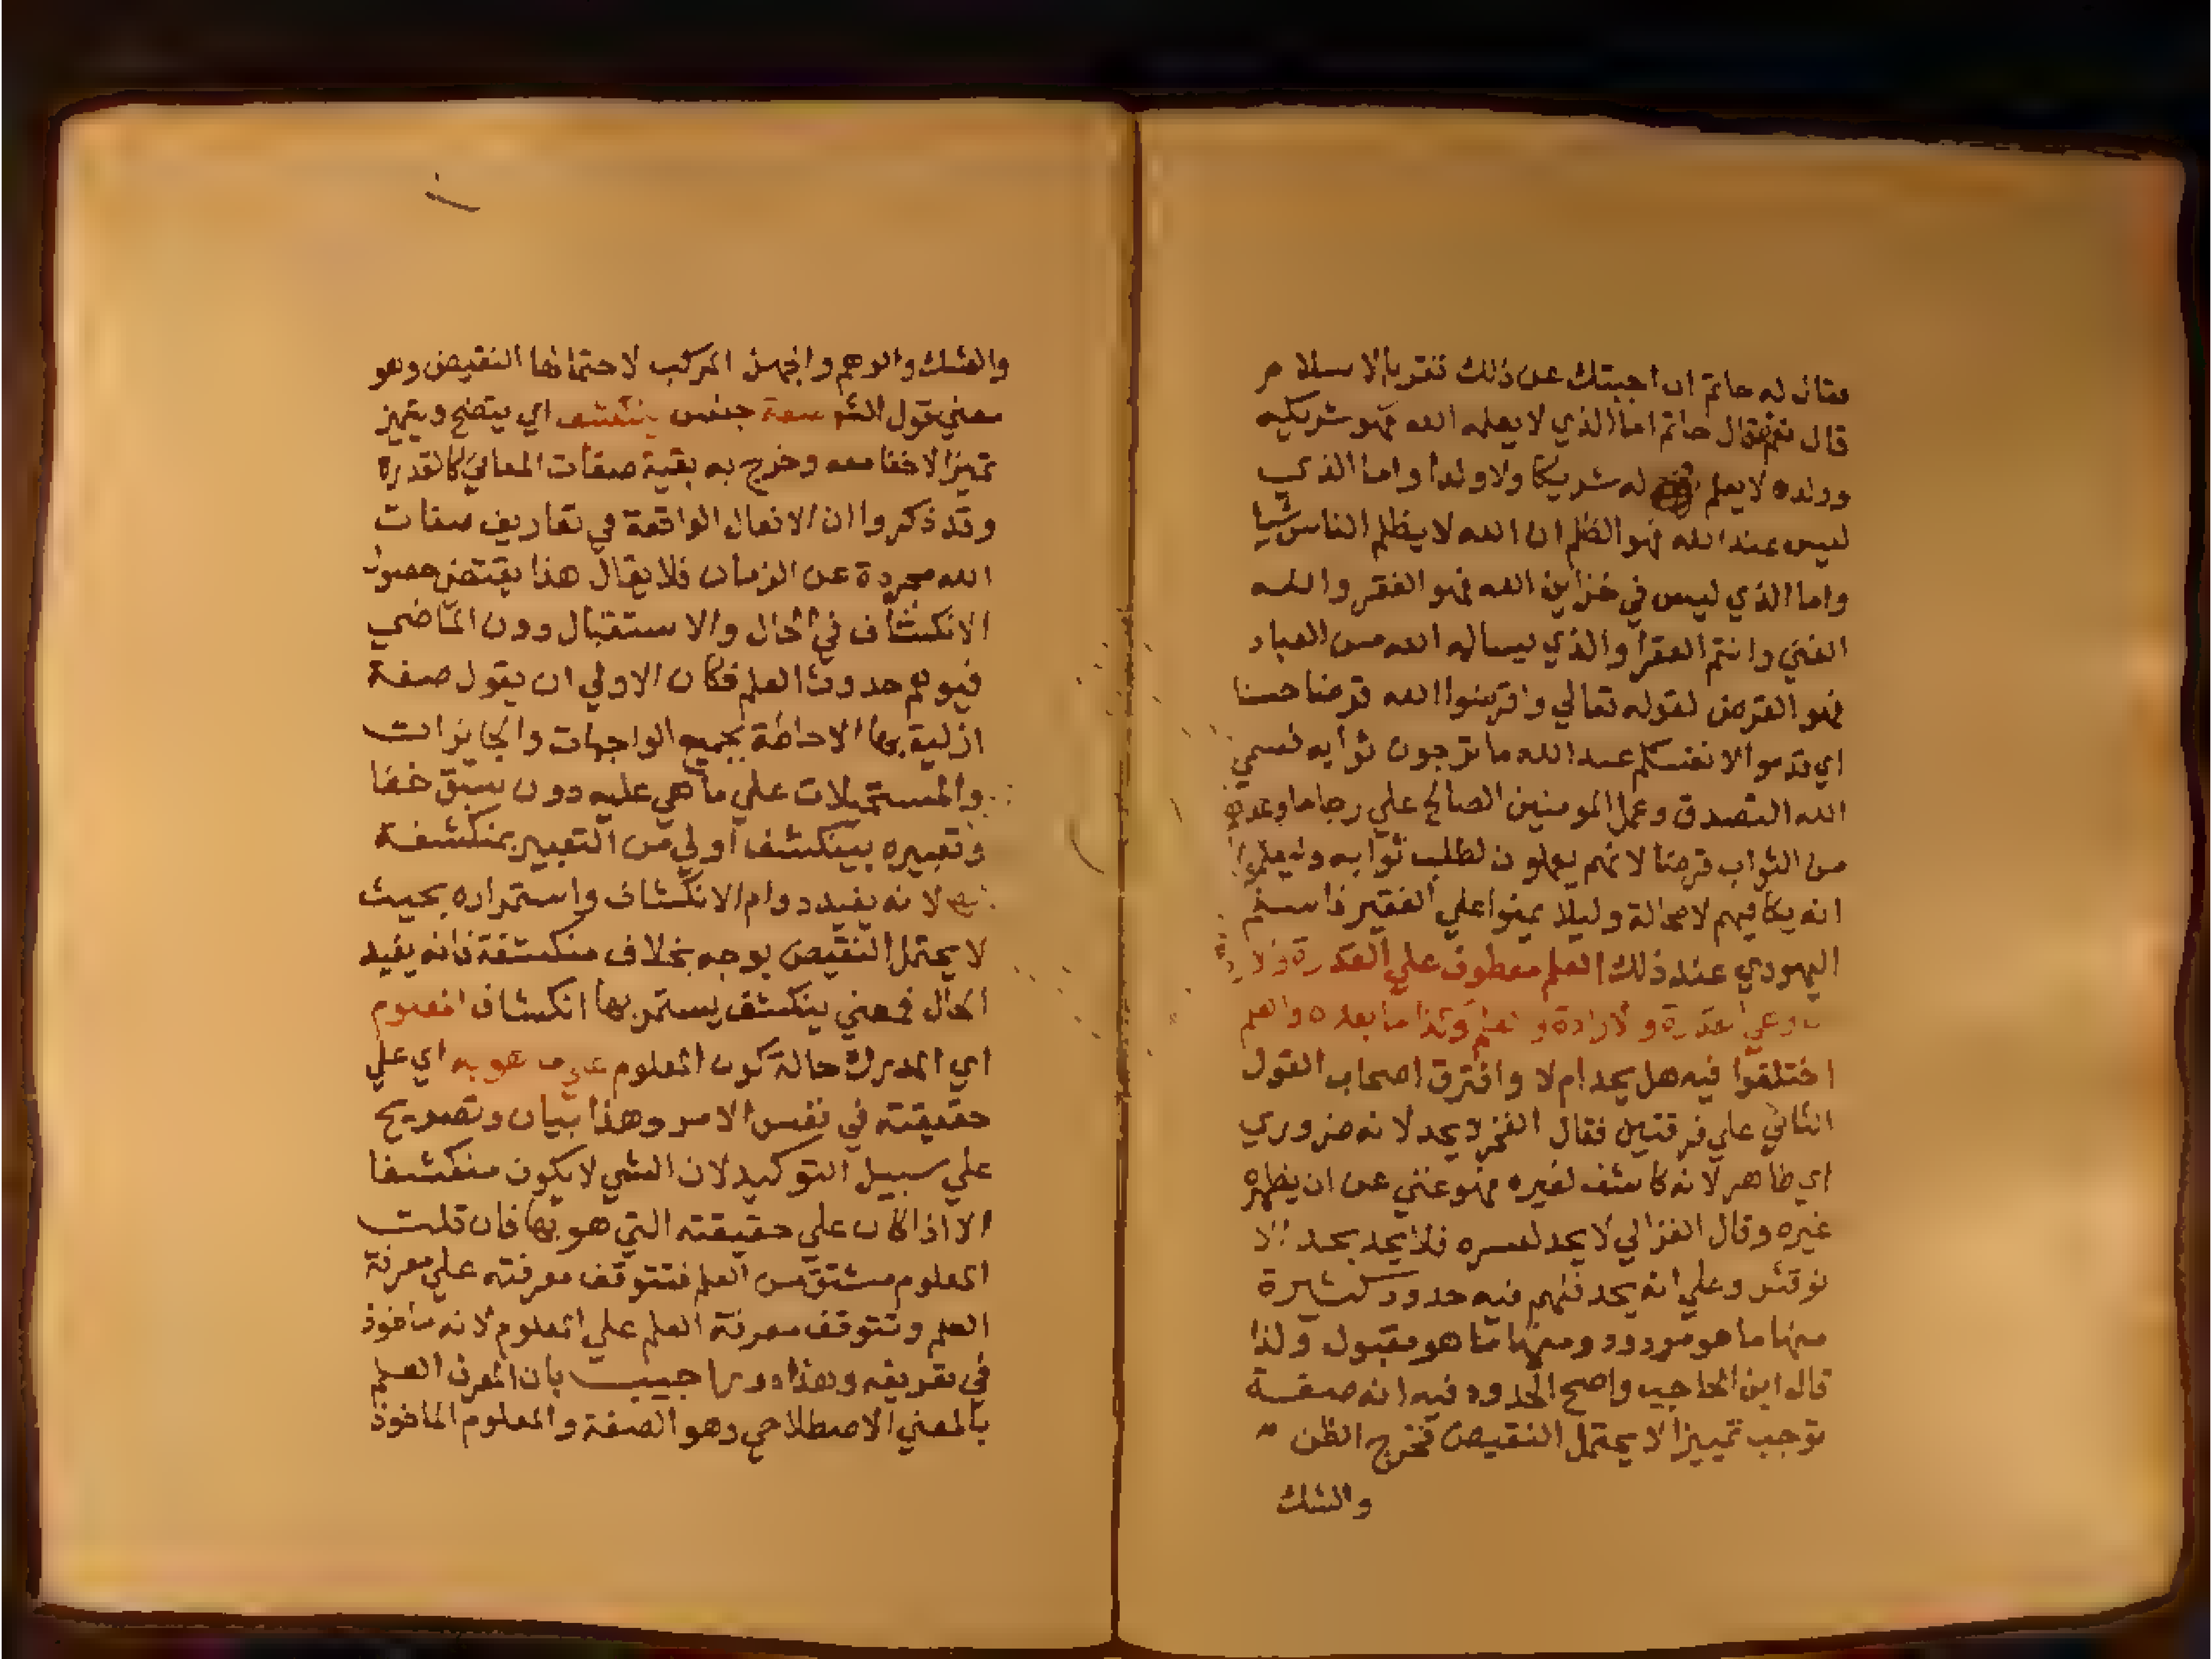 فقال له حاتم ان اجبتك عن ذلك تقر بالاسلام
قال نعم فقال حاتم اما الذي لا يعلمه الله فهو شريكه
وولده لا يعلم له شريكا ولا ولدا واما الذي
ليس عند الله فهو الظلم ان الله لا يظلم الناس شيا
واما الذي ليس في خزاين الله فهو الفقر والله
الغني وانتم الفقرا والذي يساله الله من العباد
فهو القرض لقوله تعالي واقرضوا الله قرضا حسنا
اي قدموا لانفسكم عند الله ما ترجون ثوابه فسمي
الله التصدق وعمل المومنين الصالح علي رجا ما وعدهم
من الثواب قرضا لانهم يعملون لطلب ثوابه وليعلموا
انه يكافيهم لا محالة وليلا يمنوا علي الفقير فاسلم
اليهودي عند ذلك العلم معطوف علي القدرة
القدرة والارادة والعلم وكذا ما بعده والعلم
اختلفوا فيه هل يحد ام لا وافترق اصحاب القول
الثاني علي فرقتين فقال الفخر لا يحد لانه ضروري
اي ظاهر لانه كاشف لغيره فهو غني عن ان يظهره
غيره وقال الغزالي لا يحد لعسره فلا يحد بحد الا
نوقش وعلي انه يحد فلهم فيه حدود كثيرة
منها ما هو مردود ومنها ما هو مقبول ولذا
قال ابن الحاجب واصح الحدود فيه انه صفة
توجب تمييزا لا يحتمل النقيض فخرج الظن
والشك
والشك والوهم والجهل المركب لاحتمالها النقيض وهو
معني قول الشم صفة جنس ينكشف اي يتضح ويتميز
تميزا لا خفا معه وخرج به بقية صفات المعاني كالقدرة
وقد ذكروا ان الافعال الواقعة في تعاريف صفات
الله مجردة عن الزمان فلا يقال هذا يقتضي حصول
الانكشاف في الحال والاستقبال دون الماضي
فيوهم حدوث العلم فكان الاولي ان يقول صفة
ازلية بها الاحاطة بجميع الواجبات والجايزات
والمستحيلات علي ما هي عليه دون سبق خفا
وتعبيره بينكشف اولي من التعبير بمنكشفة
لانه يفيد دوام الانكشاف واستمراره بحيث
لا يحتمل النقيض بوجه بخلاف منكشفة فانه يفيد
الحال فمعني ينكشف يستمر بها انكشاف المعلوم
اي المدرك حالة كون المعلوم علي ما هو به اي علي
حقيقته في نفس الامر وهذا بيان وتصريح
علي سبيل التوكيد لان الشي لا يكون منكشفا
الا اذا كان علي حقيقته التي هو بها فان قلت
المعلوم مشتق من العلم فتتوقف معرفته علي معرفة
العلم وتتوقف معرفة العلم علي المعلوم لانه ماخوذ
في تعريفه وهذا دور اجيب بان المعرف العلم
بالمعني الاصطلاحي وهو الصفة والمعلوم الماخوذ